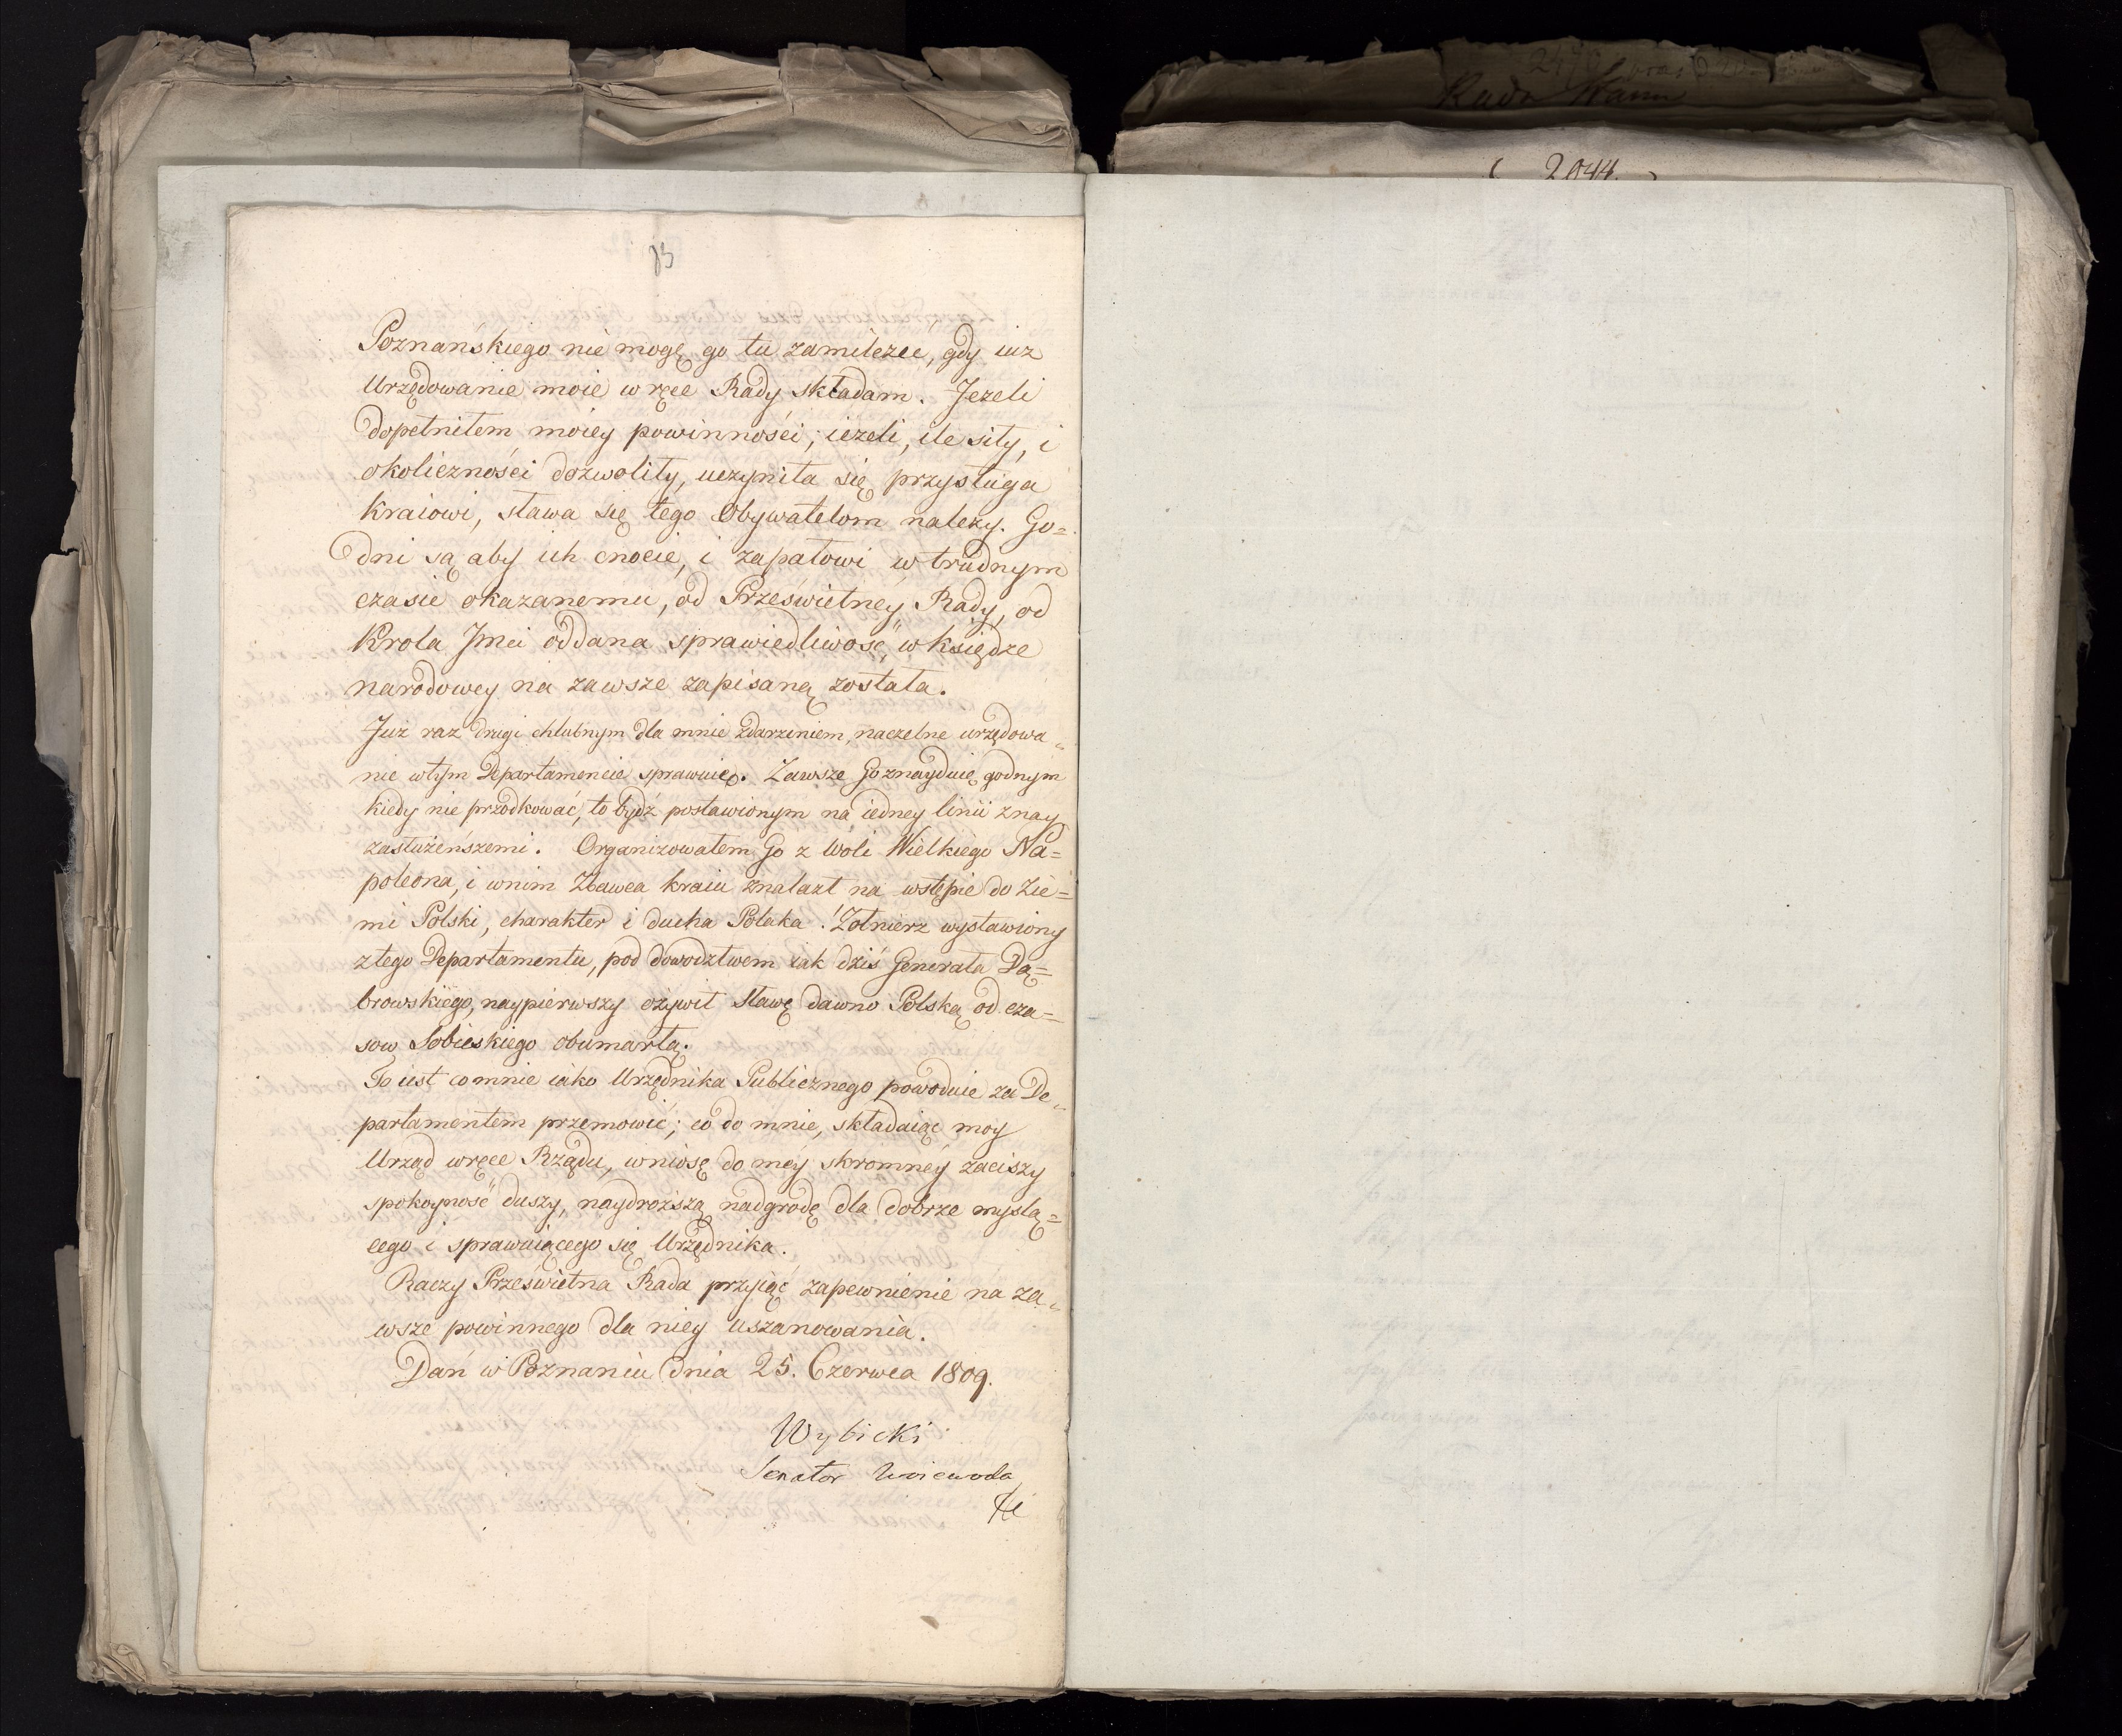 93
Poznańskiego nie mogę go tu zamilczeć, gdy iuz
Urzędowanie moie w ręce Rady składam. Jezeli
dopełniłem moiey powinności; iezeli, ile siły, i
okoliczności dozwoliły, uczyniła się przysługa
kraiowi, sława się tego Obywatelom nalezy. Go=
dni są aby ich cnocie, i zapałowi w trudnym
czasie okazanemu, od Prześwietney Rady, od
Krola Jmci oddana sprawiedliwość, w księdze
narodowey na zawsze zapisaną została.
Już raz drugi chlubnym dla mnie zdarzeniem, naczelne urzędowa„
nie w tym Departamencie sprawuię. Zawsze Go znayduię godnym
kiedy nie przodkować, to bydź postawionym na iedney linii z nay
zasłużeńszemi. Organizowałem Go z woli Wielkiego Na=
poleona, i w nim Zbawca kraiu znalazł na wstępie do Zie=
mi Polski, charakter i ducha Polaka! Żołnierz wystawiony
z tego Departamentu, pod dowodztwem iak dziś Generała Dą=
browskiego, naypierwszy ożywił sławę dawno Polską od cza=
sow Sobieskiego obumarłą.
To iest co mnie iako Urzędnika Publicznego powoduie za De„
partamentem przemowić; co do mnie, składaiąc moy
Urząd w ręce Rządu, wniosę do mey skromney zaciszy
spokoyność duszy, naydroższą nadgrodę dla dobrze myślą=
cego i sprawuiącego się Urzędnika.
Raczy Prześwietna Rada przyiąć zapewnienie na za„
wsze powinnego dla niey uszanowania.
Dań w Poznaniu dnia 25. Czerwca 1809.
Wybicki
Senator Woiewoda
2044.
Rada